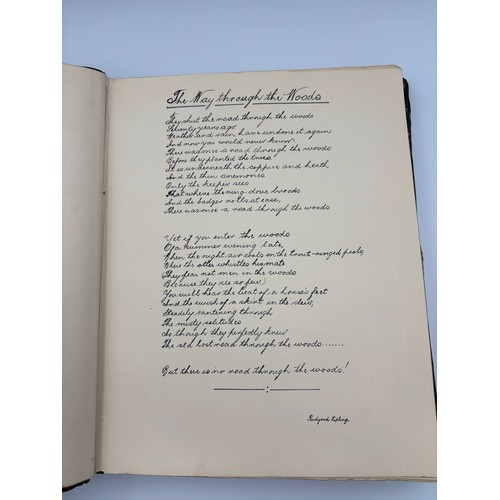 The Way through the Woods
They shut the road through the woods
Seventy years ago
Weather and rain have undone it again
And now you would never know
There was once a road through the woods
Before they planted the trees!
It is underneath the coppice and heath
And the thin anemonies
Only the keeper sees
That where the ring-dove broods
And the badger rolls at ease,
There was once a road through the woods
Yet if you enter the woods
Of a summer evening late,
When the night air cools on the trout-ringed pools,
Where the otter whistles his mate
They fear not men in the woods
Because they see so few;)
You will hear the beat of a horse's feet
And the swish of a skirt in the dew,
Steadily cantering through
The misty solitudes
As though they perfectly knew
The old lost road through the woods.......
But there is no road through the woods!
Rudyard Kipling.